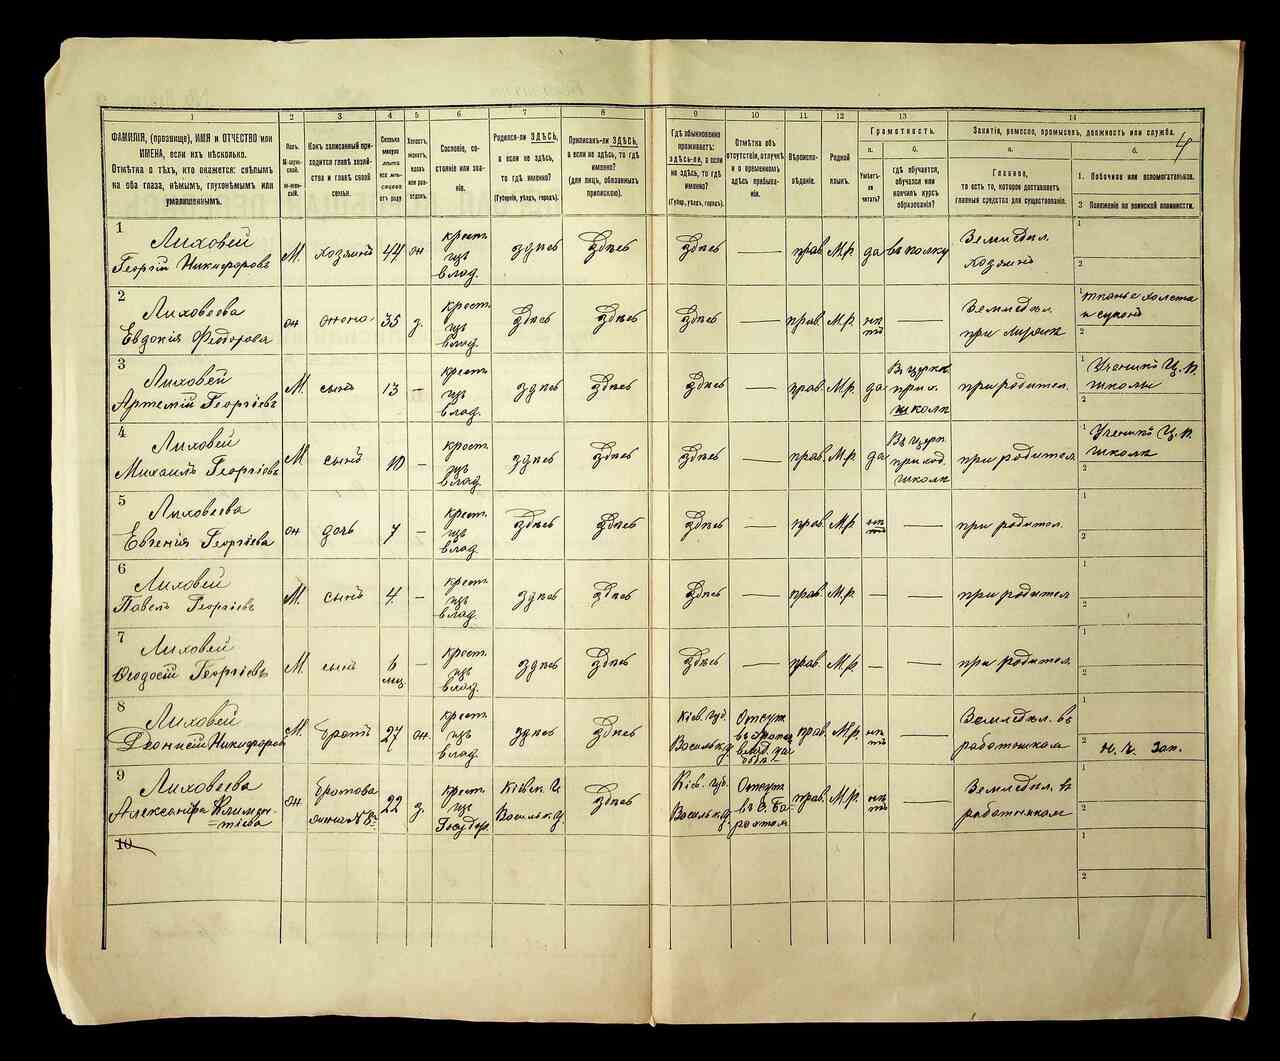 4
1
2
3
4
5
6
7
8
9
10
11
12
13
14
ФАМИЛІЯ, (прозвище), ИМЯ и ОТЧЕСТВО или
ИМЕНА, если ихъ нѣсколько.
Отмѣтка о тѣхъ, кто окажется: слѣпымъ
на оба глаза, нѣмымъ, глухонѣмымъ или
умалишеннымъ.
Полъ.
М-мужской.
Ж-женскій.
Какъ записанный приходится главѣ хозяйства и главѣ своей
семьи.
Сколько
минуло
лѣтъ
или мѣсяцевъ
отъ роду
Холостъ,
женатъ,
вдовъ
или разведенъ.
Сословіе, состояніе или званіе.
Родился-ли ЗДѢСЬ,
а если не здѣсь,
то гдѣ именно?
(Губернія, уѣздъ, городъ).
Приписанъ-ли ЗДѢСЬ,
а если не здѣсь, то гдѣ
именно?
(для лицъ, обязанныхъ
припиской).
Гдѣ обыкновенно
проживаетъ:
здѣсь-ли, а если
не здѣсь, то гдѣ
именно?
(Губер., уѣздъ, городъ).
Отмѣтка объ
отсутствіи, отлучкѣ
и о временномъ
здѣсь пребываніи.
Вѣроисповѣданіе.
Родной
языкъ.
Грамотность.
а.
Умѣетъ-ли
читать?
б.
гдѣ обучается,
обучался или
кончилъ курсъ
образованія?
Занятія, ремесло, промыселъ, должность или служба.
а.
Главное,
то есть то, которое доставляетъ
главныя средства для существованія.
б.
1. Побочное или вспомогательное.
2. Положеніе по воинской повинности.
1 Лиховей
Георгій Никифоровъ М. хозяинъ 44 ж крест. изъ влад. здѣсь здѣсь здѣсь — прав. М.р. да въ полку Землед. хозяинъ 1 2
2 Лиховеева
Евдокія Феодорова ж жена 35 з. крест. изъ влад. здѣсь здѣсь здѣсь — прав. М.р. нѣтъ — Землед. при мужѣ 1 тканье холста и сукна 2
3 Лиховей
Артемій Георгіевъ М. сынъ 13 — крест. изъ влад. здѣсь здѣсь здѣсь — прав. М.р. да Въ церк. прих. школѣ при родител. 1 Ученикъ Ц. п. школы 2
4 Лиховей
Михаилъ Георгіевъ М сынъ 10 — крест. изъ влад. здѣсь здѣсь здѣсь — прав. М.р. да Въ церк. приход. школѣ при родител. 1 Ученикъ Ц. п. школы 2
5 Лиховеева
Евгенія Георгіева ж дочь 7 — крест. изъ влад. здѣсь здѣсь здѣсь — прав. М.р. нѣтъ — при родител. 1 2
6 Лиховей
Павелъ Георгіевъ М. сынъ 4 — крест. изъ влад. здѣсь здѣсь здѣсь — прав. М.р. — — при родител. 1 2
7 Лиховей
Ѳеодосій Георгіевъ М. сынъ 6 мѣс. — крест. изъ влад. здѣсь здѣсь здѣсь — прав. М.р. — — при родител. 1 2
8 Лиховей
Діонисій Никифоровъ М. братъ 27 ж. крест. изъ влад. здѣсь здѣсь Кіев. губ. Васильк. у. Отсут. прав. М.р. нѣтъ — Землед. въ работникахъ 1 2 н. ч. зап.
9 Лиховеева
Александра Климентіева ж братова жена № 8й 22 з. крест. изъ Государ. Кіевск. г. Васильк. у. здѣсь Кіев. губ. Васильк. у. Отсут. прав. М.р. нѣтъ — Землед. въ работникахъ 1 2
10 1 2